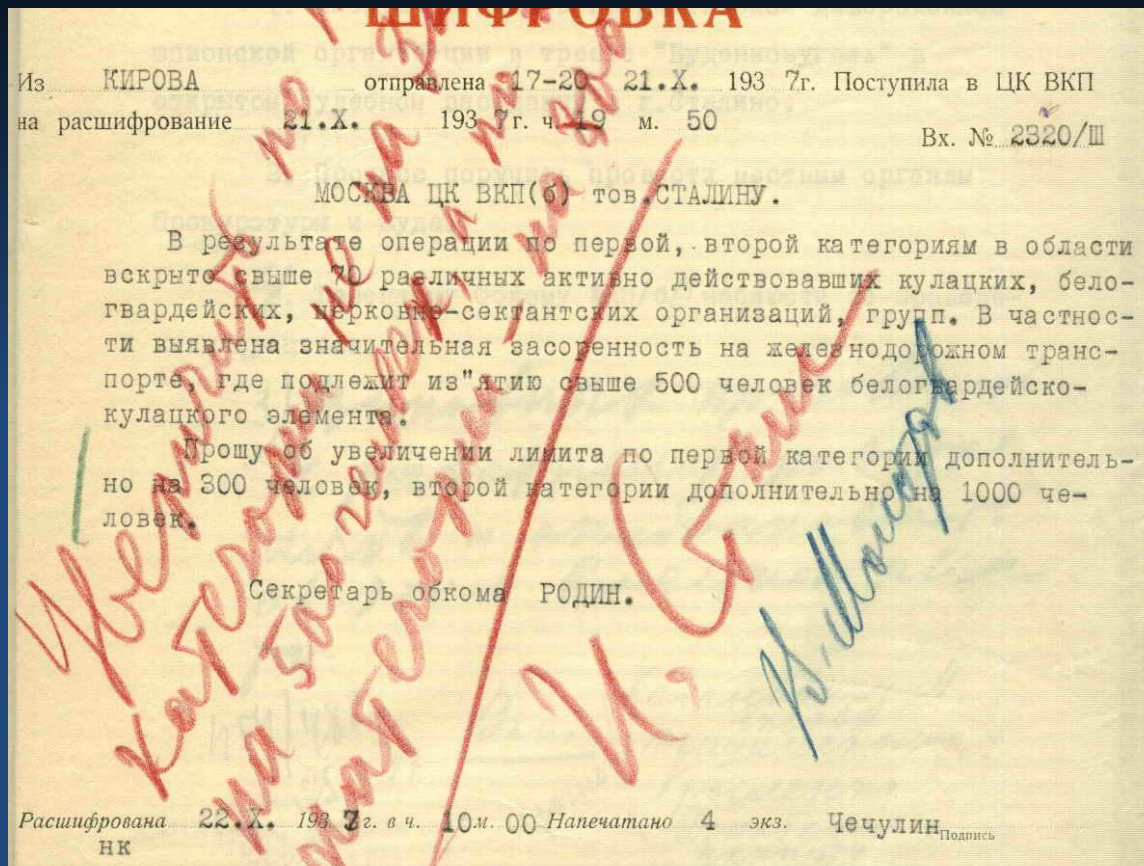 ШИФРОВКА
Из КИРОВА отправлена 17-20 21.X. 1937г. Поступила в ЦК ВКП
на расшифрование 21.X. 1937г. ч. 19 м. 50
Вх. № 2320/III
МОСКВА ЦК ВКП(б) тов.СТАЛИНУ.
В результате операции по первой, второй категориям в области
вскрыто свыше 70 различных активно действовавших кулацких, бело-
гвардейских, церковно-сектантских организаций, групп. В частнос-
ти выявлена значительная засоренность на железнодорожном транс-
порте, где подлежит из"ятию свыше 500 человек белогвардейско-
кулацкого элемента.
Прошу об увеличении лимита по первой категории дополнитель-
но на 300 человек, второй категории дополнительно на 1000 че-
ловек.
Секретарь обкома РОДИН.
Увеличить по
категории не на
на 500 человек, а по
категории - на 800
И. Сталин
В. Молотов
Расшифрована 22.X. 1937г. в ч. 10м. 00 Напечатано 4 экз. Чечулин
Подпись
нк